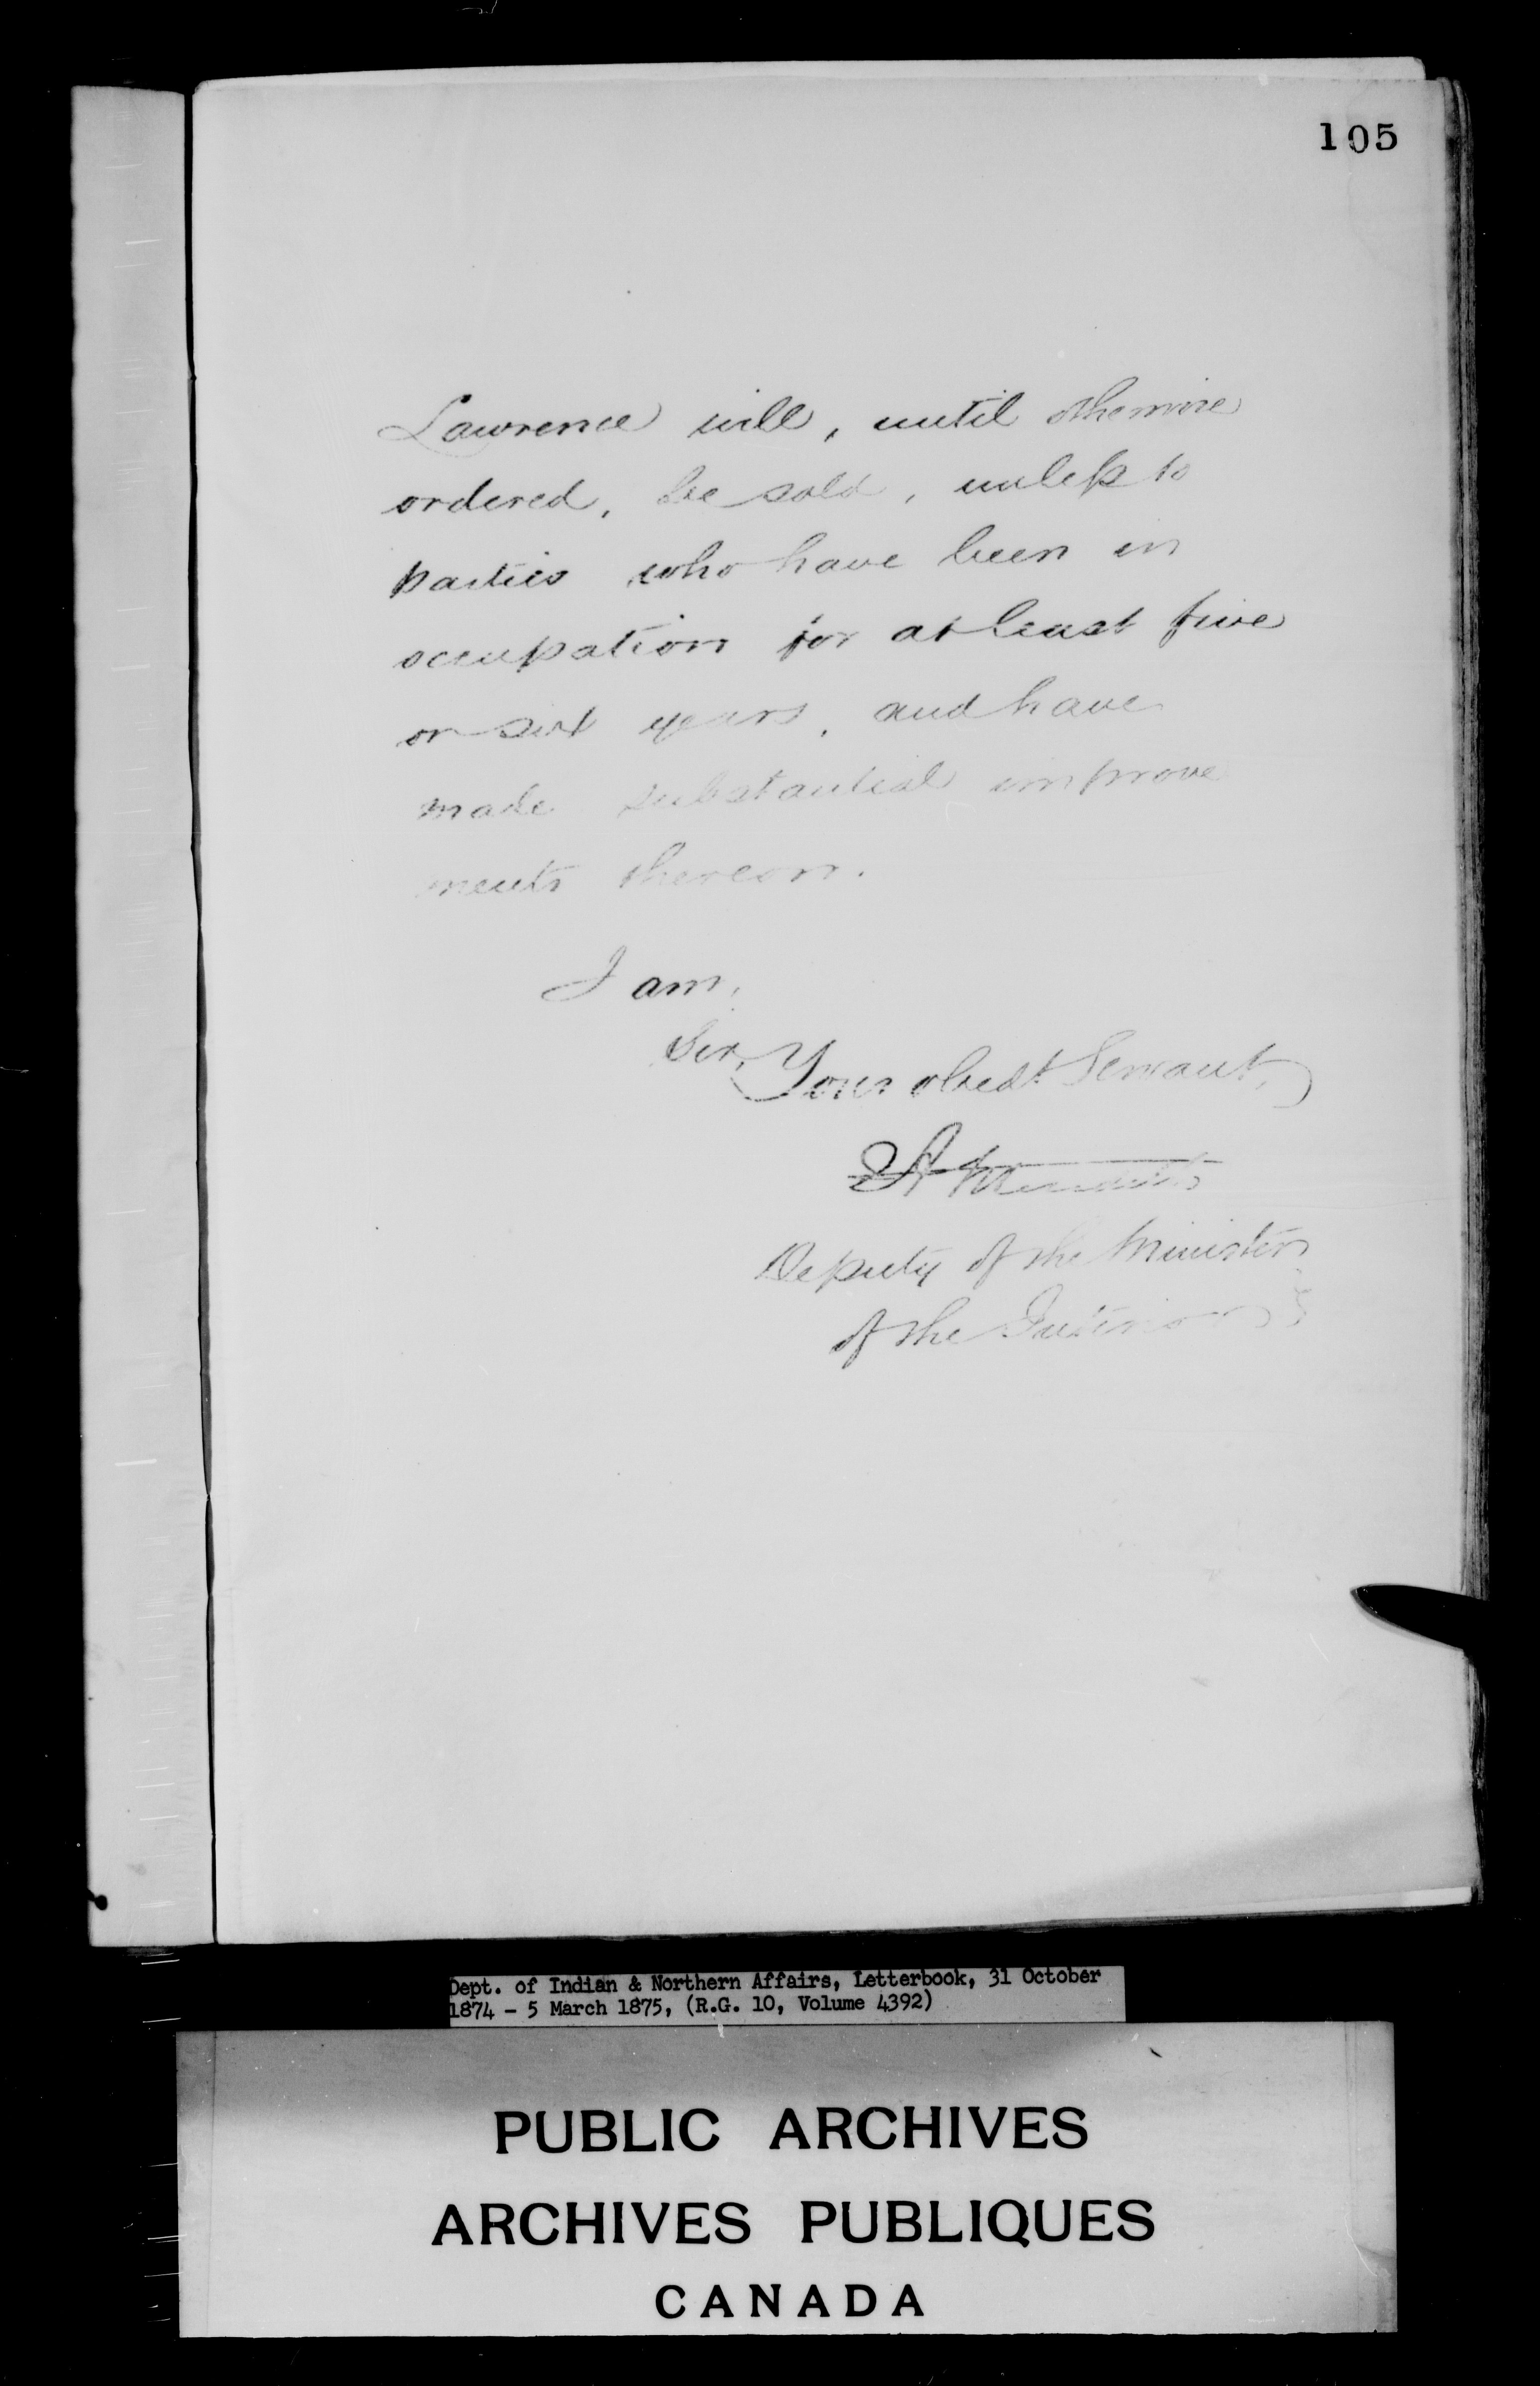 105
Lawrence will, until otherwise
ordered, be sold, unless to
parties who have been in
occupation for at least five
or six years, and have
made substantial improve
ments thereon.
I am,
Sir,
Your obedt Servant,
Deputy of the Minister
of the Interior
Dept. of Indian & Northern Affairs, Letterbook, 31 October
1874 - 5 March 1875, (R.G. 10, Volume 4392)
PUBLIC ARCHIVES
ARCHIVES PUBLIQUES
CANADA